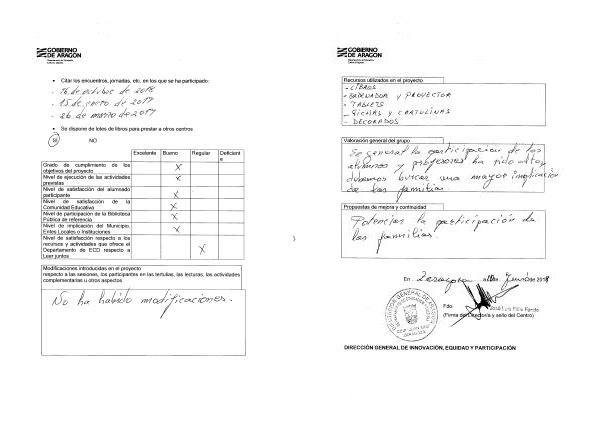 GOBIERNO
DE ARAGON
• Citar los encuentros, jornadas, etc, en los que se ha participado:
- 16 de octubre de 2018
- 15 de enero de 2019
- 26 de marzo de 2019
• Se dispone de lotes de libros para prestar a otros centros
SI NO
Excelente Bueno Regular Deficiente
Grado de cumplimiento de los objetivos del proyecto X
Nivel de ejecución de las actividades previstas X
Nivel de satisfacción del alumnado participante X
Nivel de satisfacción de la Comunidad Educativa X
Nivel de participación de la Biblioteca Pública de referencia X
Nivel de implicación del Municipio, Entes Locales o Instituciones X
Nivel de satisfacción respecto a los recursos y actividades que ofrece el Departamento de ECD respecto a Leer juntos X
Modificaciones introducidas en el proyecto
respecto a las sesiones, los participantes en las tertulias, las lecturas, las actividades
complementarias u otros aspectos
No ha habido modificaciones.
GOBIERNO
DE ARAGON
Recursos utilizados en el proyecto
- LIBROS
- ORDENADOR y PROYECTOR
- TABLETS
- FICHAS y CARTULINAS
- DECORADOS
Valoración general del grupo
En general la participación de los
alumnos y profesores ha sido alta,
debemos buscar una mayor implicación
de las familias.
Propuestas de mejora y continuidad
Potenciar la participación de
las familias.
En Zaragoza de Junio de 201
Fdo.
(Firma del Director/a y sello del Centro)
DIRECCIÓN GENERAL DE INNOVACIÓN, EQUIDAD Y PARTICIPACIÓN